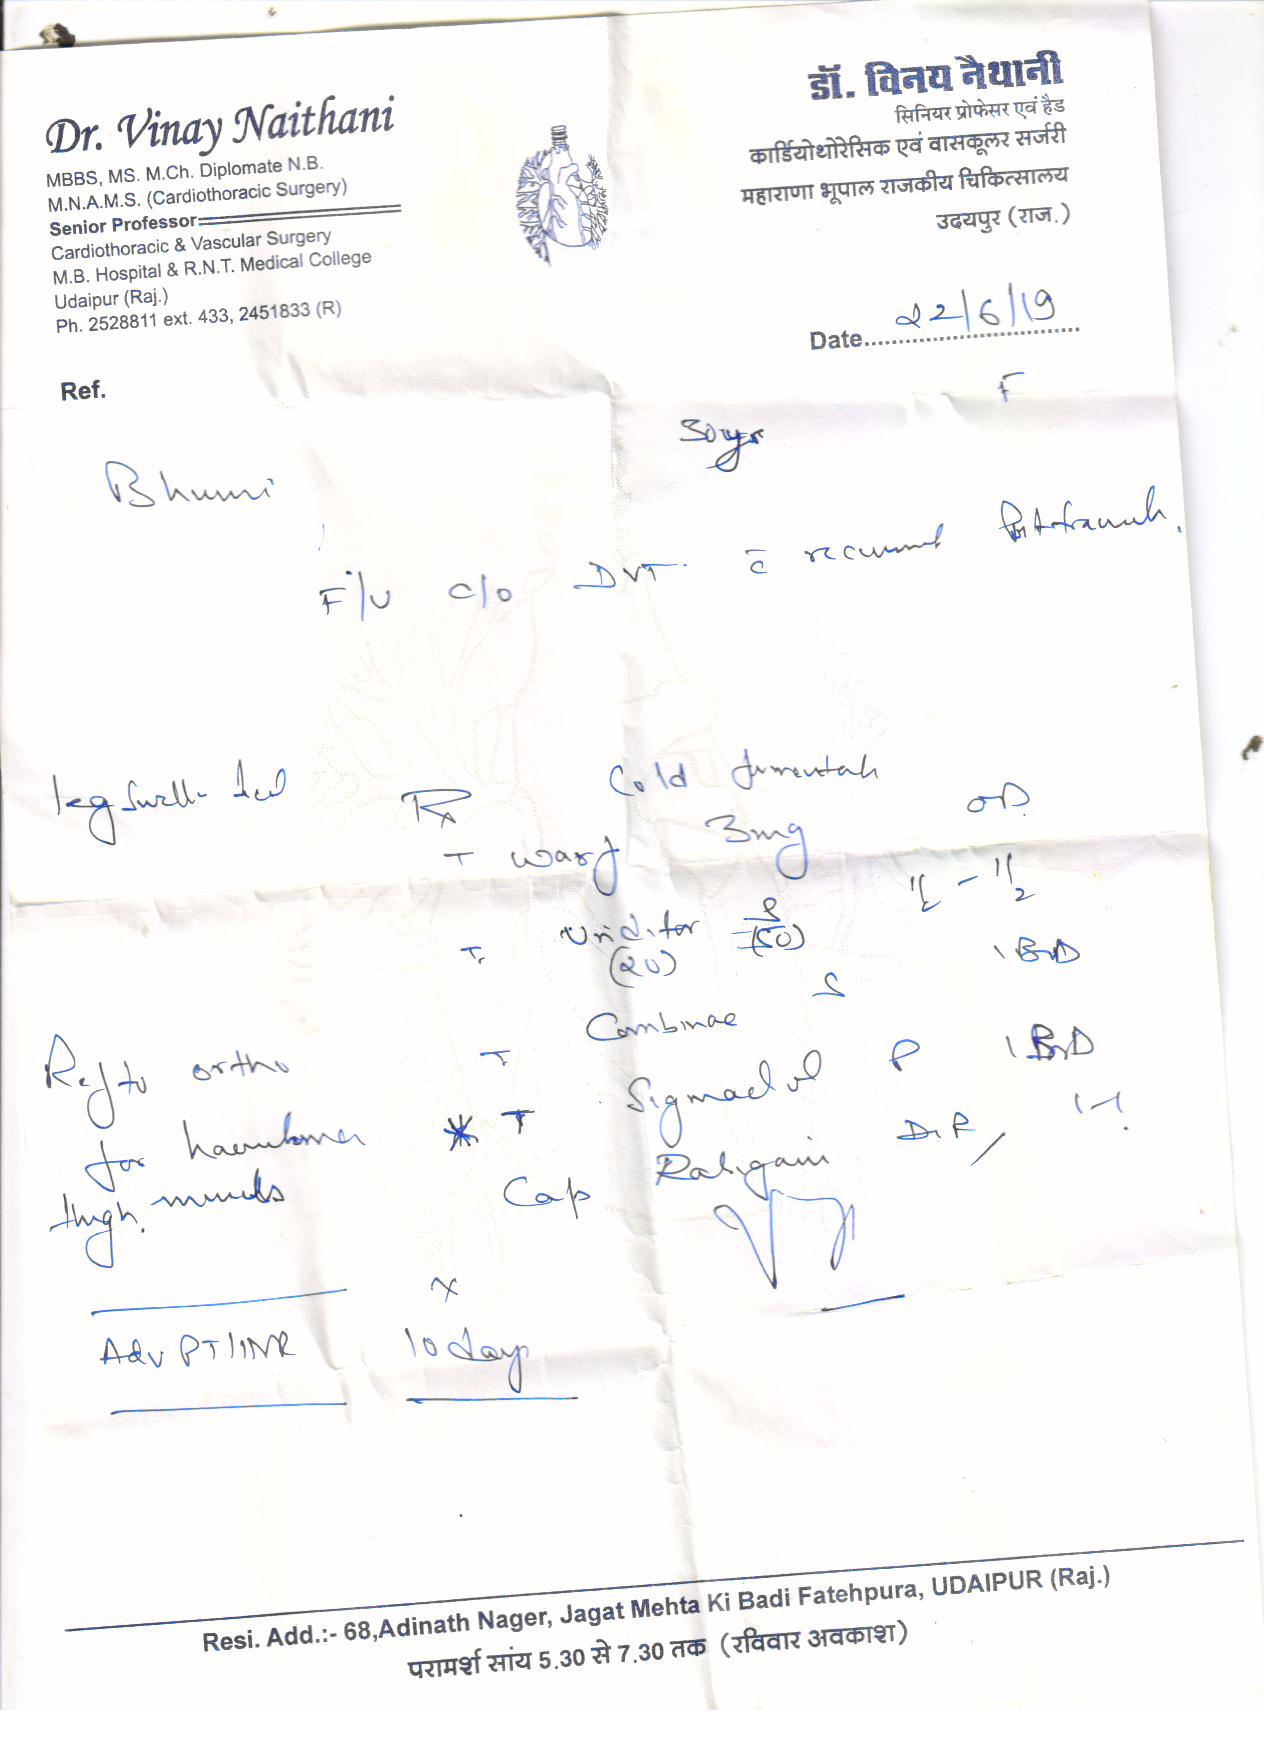 Dr. Vinay Naithani
MBBS, MS. M.Ch. Diplomate N.B.
M.N.A.M.S. (Cardiothoracic Surgery)
Senior Professor
Cardiothoracic & Vascular Surgery
M.B. Hospital & R.N.T. Medical College
Udaipur (Raj.)
Ph. 2528811 ext. 433, 2451833 (R)
डॉ. विनय नैथानी
सिनियर प्रोफेसर एवं हैड
कार्डियोथोरेसिक एवं वासकूलर सर्जरी
महाराणा भूपाल राजकीय चिकित्सालय
उदयपुर (राज.)
Date 22/6/19
Ref.
F
Bhumi 30yr
F/U c/o DVT c̄
Leg Swell-
Rx
Cold
T Warf 3mg OD
T. (20) (50) 1/2 - 1/2
T Combinae 1 BD
T P 1 BD
Cap DSR, 1-1
Ref to ortho
for haematoma
thigh muscles
x
Adv PT/INR 10 days
Resi. Add.:- 68,Adinath Nager, Jagat Mehta Ki Badi Fatehpura, UDAIPUR (Raj.)
परामर्श सांय 5.30 से 7.30 तक (रविवार अवकाश)